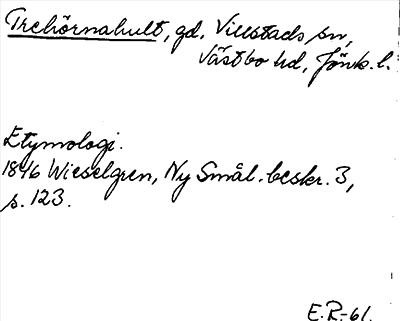 Trehörnahult, gd, Villstads sn,
Västbo hd, Jönk. l.
Etymologi.
1846 Wieselgren, Ny Smål. beskr. 3,
s. 123.
E.R-61.